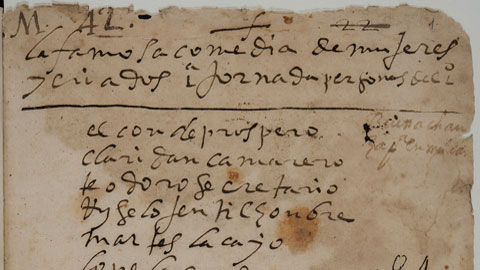 M. 42.
la famosa comedia de mujeres
y criados 1ª Jornada personas del 1º
el conde prospero
claridan camarero
teodoro secretario
ryselo jentilhonbre
martes lacayo
lope